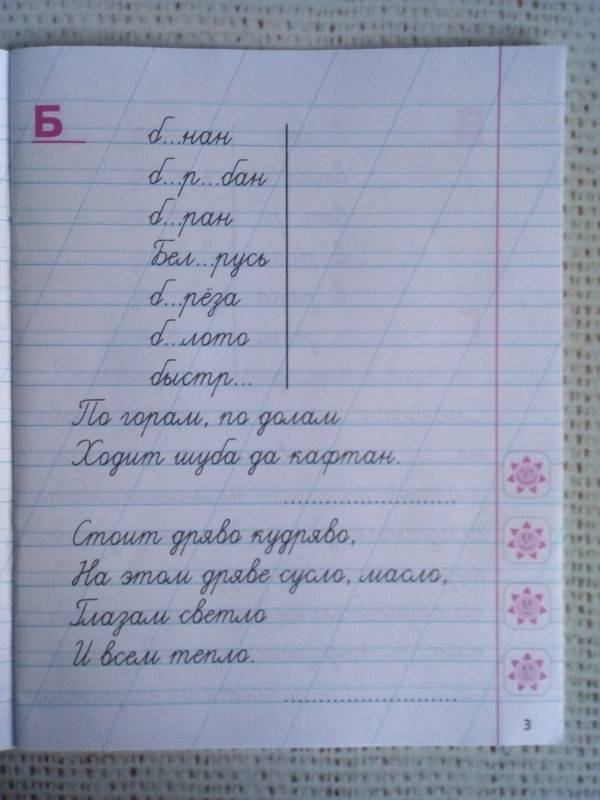 Б
б...нан
б...р...бан
б...ран
Бел...русь
б...рёза
б...лото
быстр...
По горам, по долам
Ходит шуба да кафтан.
..............................
Стоит дряво кудряво,
На этом дряве сусло, масло,
Глазам светло
И всем тепло.
..............................
3